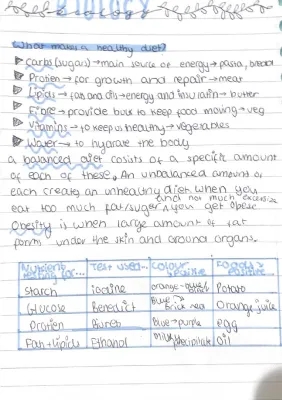 BIOLOGY
What makes a healthy diet?
Carbs (sugars) → main source of energy → pasta, bread
Protien → for growth and repair → meat
Lipids → fats and oils → energy and insulation → butter
Fibre → provide bulk to keep food moving → veg
Vitamins → to keep us healthy → vegetables
Water → to hydrate the body
a balanced diet cosists of a specific amount
of each of these. An unbalanced amount of
each creates an unhealthy diet. When you
and not much excersize
eat too much fat/sugar you get obese
Obesity is when large amount of fat
form under the skin and around organs.
Nutrient testing for... Test used... Colour positive Foods positive
Starch iodine orange → black Potato
Glucose Benedict Blue → Brick red Orange juice
Protien Biuret Blue → purple egg
Fat + Lipids Ethanol Milky precipitate oil